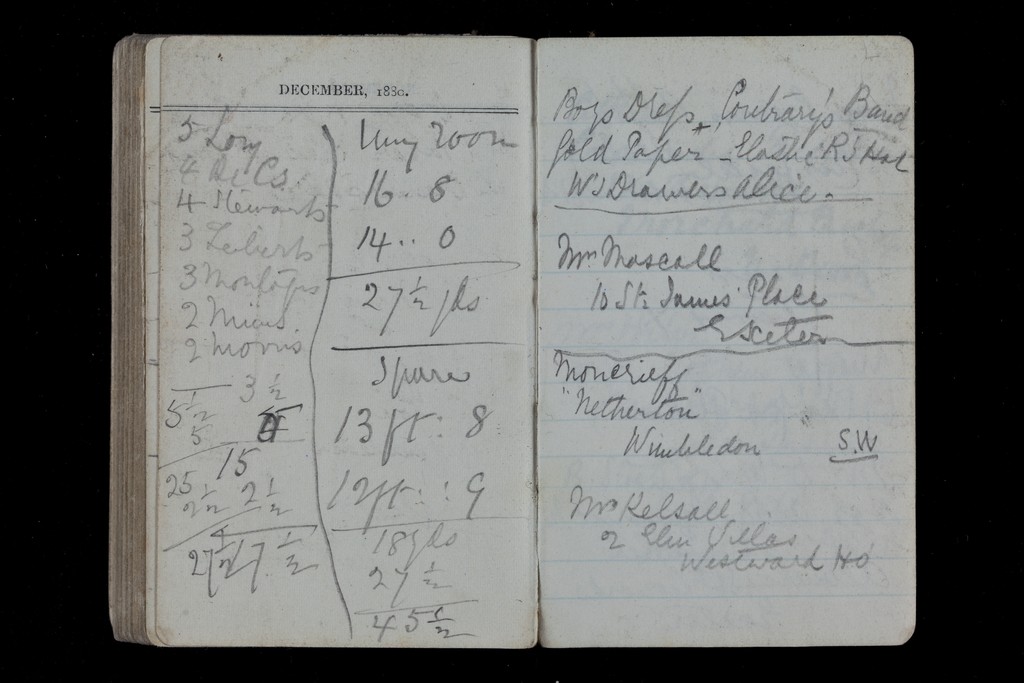 DECEMBER, 1880.
5 Long
4 De Cs.
4 Stewarts
3
3
2
2 Morris
3 1/2
5 1/2
5 5
15
25
2 1/2 2 1/2
27 1/2 17 1/2
My room
16 . 8
14 .. 0
27 1/2 yds
Spare
13 ft : 8
12 ft : : 9
18 yds
27 1/2
45 1/2
Boys Dress + Contrary's Band
Gold Paper - Elastic R's Hat
W's Drawers Alice.
Mrs Mascall
10 St. James' Place
Exeter
Moncrieff
"Netherton"
Wimbledon S.W
Mrs Kelsall
2 Elm Villas
Westward Ho